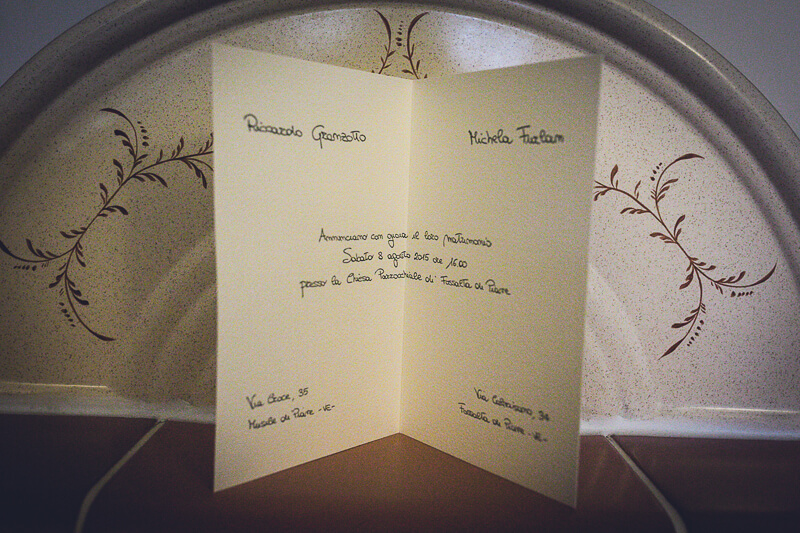 Riccardo Granzotto
Michela Furlan
Annunciano con gioia il loro matrimonio
Sabato 8 agosto 2015 ore 16.00
presso la Chiesa Parrocchiale di Fossalta di Piave
Via Croce, 35
Musile di Piave -VE-
Via 34
Fossalta di Piave -VE-